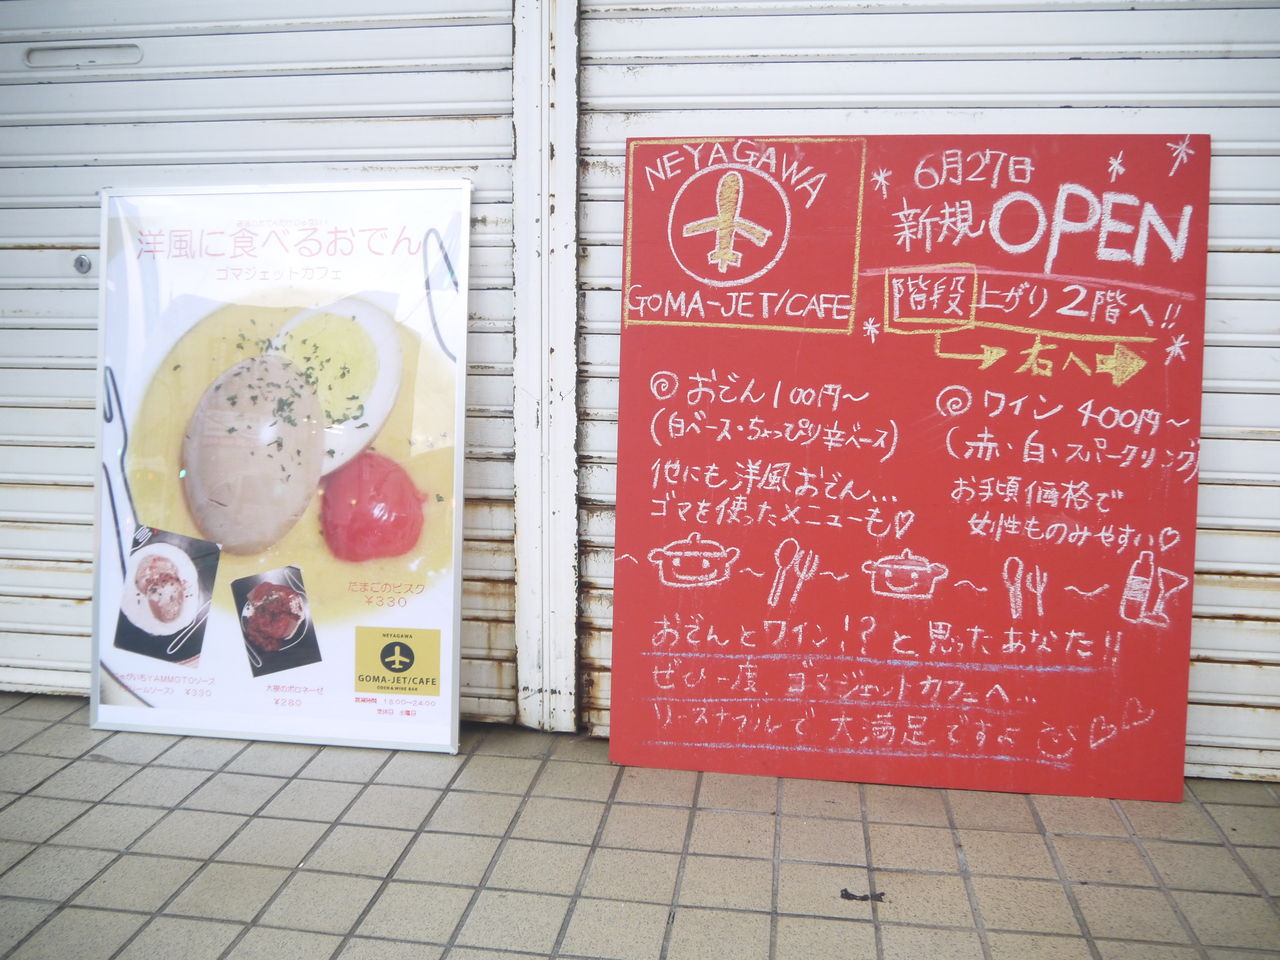 洋風に食べるおでん
ゴマジェットカフェ
たまごのビスク
¥330
YAMMOTOソース
¥330
大根のボロネーゼ
¥280
NEYAGAWA
GOMA-JET/CAFE
ODEN & WINE BAR
営業時間 18:00〜24:00
定休日 火曜日
NEYAGAWA
GOMA-JET/CAFE
6月27日
新規OPEN
階段上がり2階へ!!
右へ
おでん100円〜
(白ベース・ちょっぴり辛ベース)
他にも洋風おでん...
ゴマを使ったメニューも♡
ワイン 400円〜
(赤、白、スパークリング)
お手頃価格で
女性ものみやすい♡
おでんとワイン!?と思ったあなた!!
ぜひ一度 ゴマジェットカフェへ...
リーズナブルで大満足ですよ